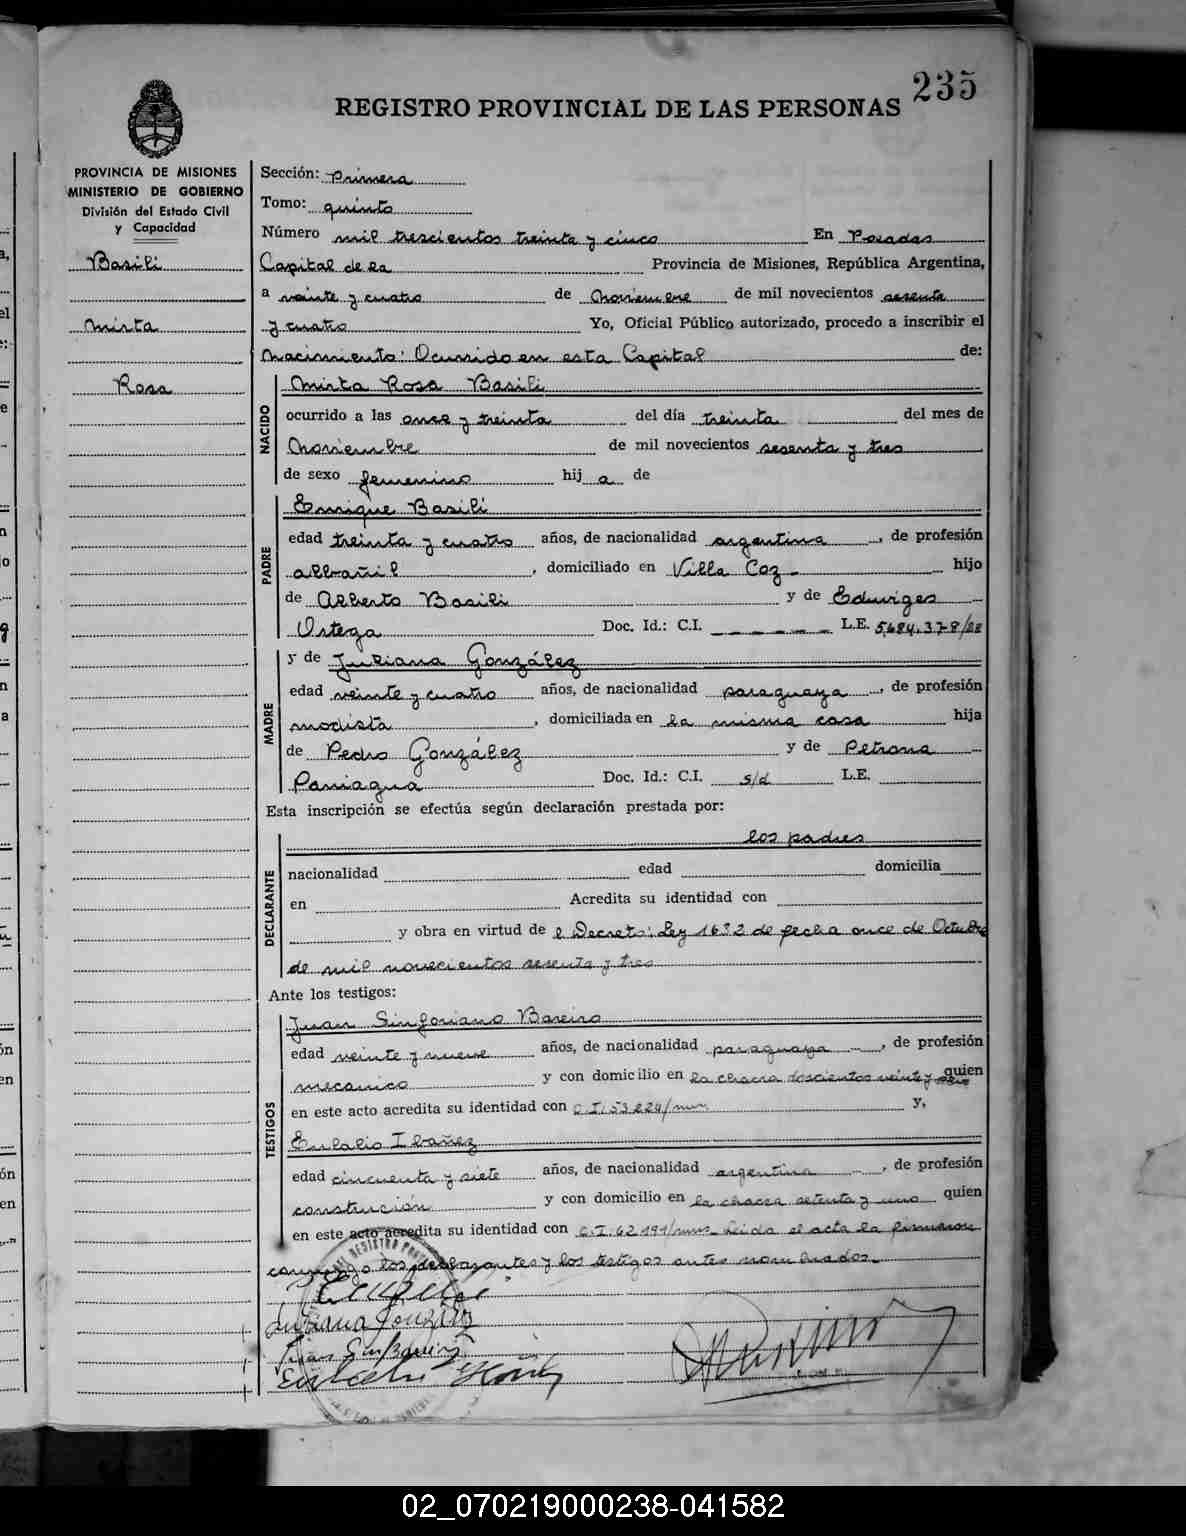 235
REGISTRO PROVINCIAL DE LAS PERSONAS
PROVINCIA DE MISIONES
MINISTERIO DE GOBIERNO
División del Estado Civil
y Capacidad
Basili
Mirta
Rosa
Sección: Primera
Tomo: quinto
Número mil trescientos treinta y cinco En Posadas
Capital de la Provincia de Misiones, República Argentina,
a veinte y cuatro de Noviembre de mil novecientos sesenta
y cuatro Yo, Oficial Público autorizado, procedo a inscribir el
Nacimiento: Ocurrido en esta Capital de:
NACIDO
Mirta Rosa Basili
ocurrido a las once y treinta del día treinta del mes de
Noviembre de mil novecientos sesenta y tres
de sexo femenino hij a de
PADRE
Enrique Basili
edad treinta y cuatro años, de nacionalidad argentina, de profesión
albañil, domiciliado en Villa Coz hijo
de Alberto Basili y de Eduviges
Ortega Doc. Id.: C.I. L.E. 5.684.378/28
MADRE
y de Juliana González
edad veinte y cuatro años, de nacionalidad paraguaya, de profesión
modista, domiciliada en la misma casa hija
de Pedro González y de Petrona
Paniagua Doc. Id.: C.I. s/d L.E.
Esta inscripción se efectúa según declaración prestada por:
DECLARANTE
los padres
nacionalidad edad domicilia
en Acredita su identidad con
y obra en virtud de l Decreto: Ley 1632 de fecha once de Octubre
de mil novecientos sesenta y tres
Ante los testigos:
TESTIGOS
Juan Sinforiano Bareiro
edad veinte y nueve años, de nacionalidad paraguaya, de profesión
mecanico y con domicilio en la chacra doscientos veinte y seis quien
en este acto acredita su identidad con C.I. 53224/mns y,
Eulalio Ibañez
edad cincuenta y siete años, de nacionalidad argentina, de profesión
construcción y con domicilio en la chacra setenta y uno quien
en este acto acredita su identidad con C.I. 62191/mns. Leida el acta la firmaron
conmigo los declarantes y los testigos antes nombrados.
Juliana González
02_070219000238-041582